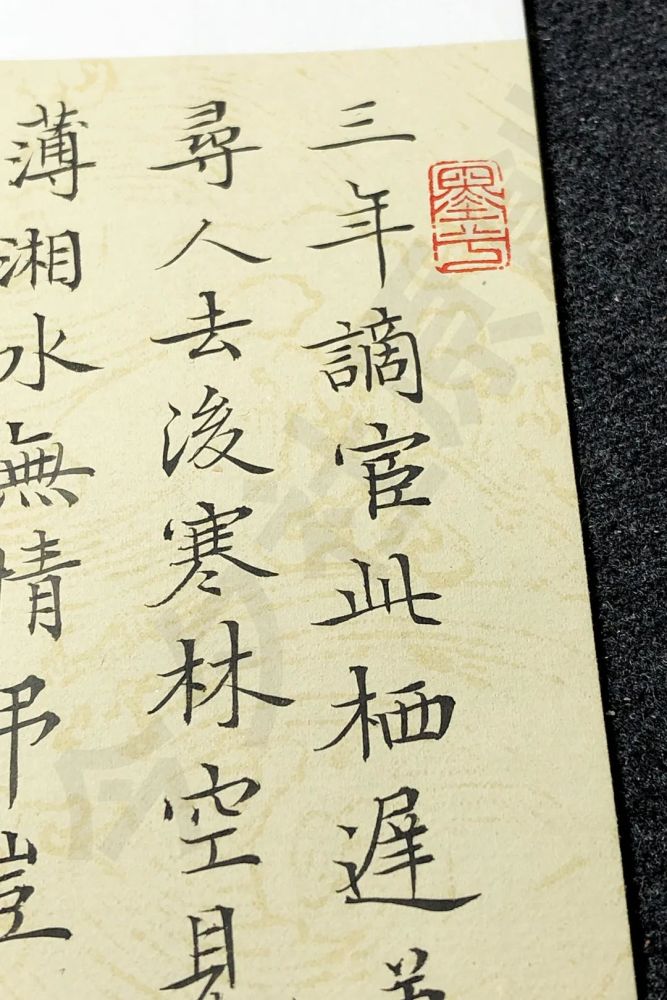 三年謫宦此栖遲
尋人去後寒林空見
薄湘水無情弔豈